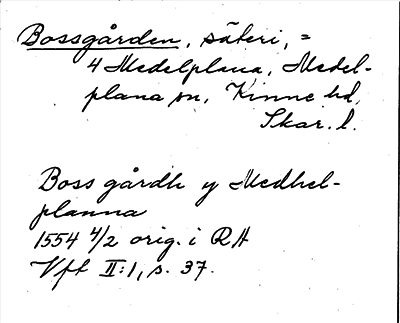 Bossgården, säteri, =
4 Medelplana, Medel-
plana sn, Kinne hd,
Skar. l.
Boss gårdh y Medhel-
planna
1554 4/2 orig. i RA
Vft II:1, s. 37.